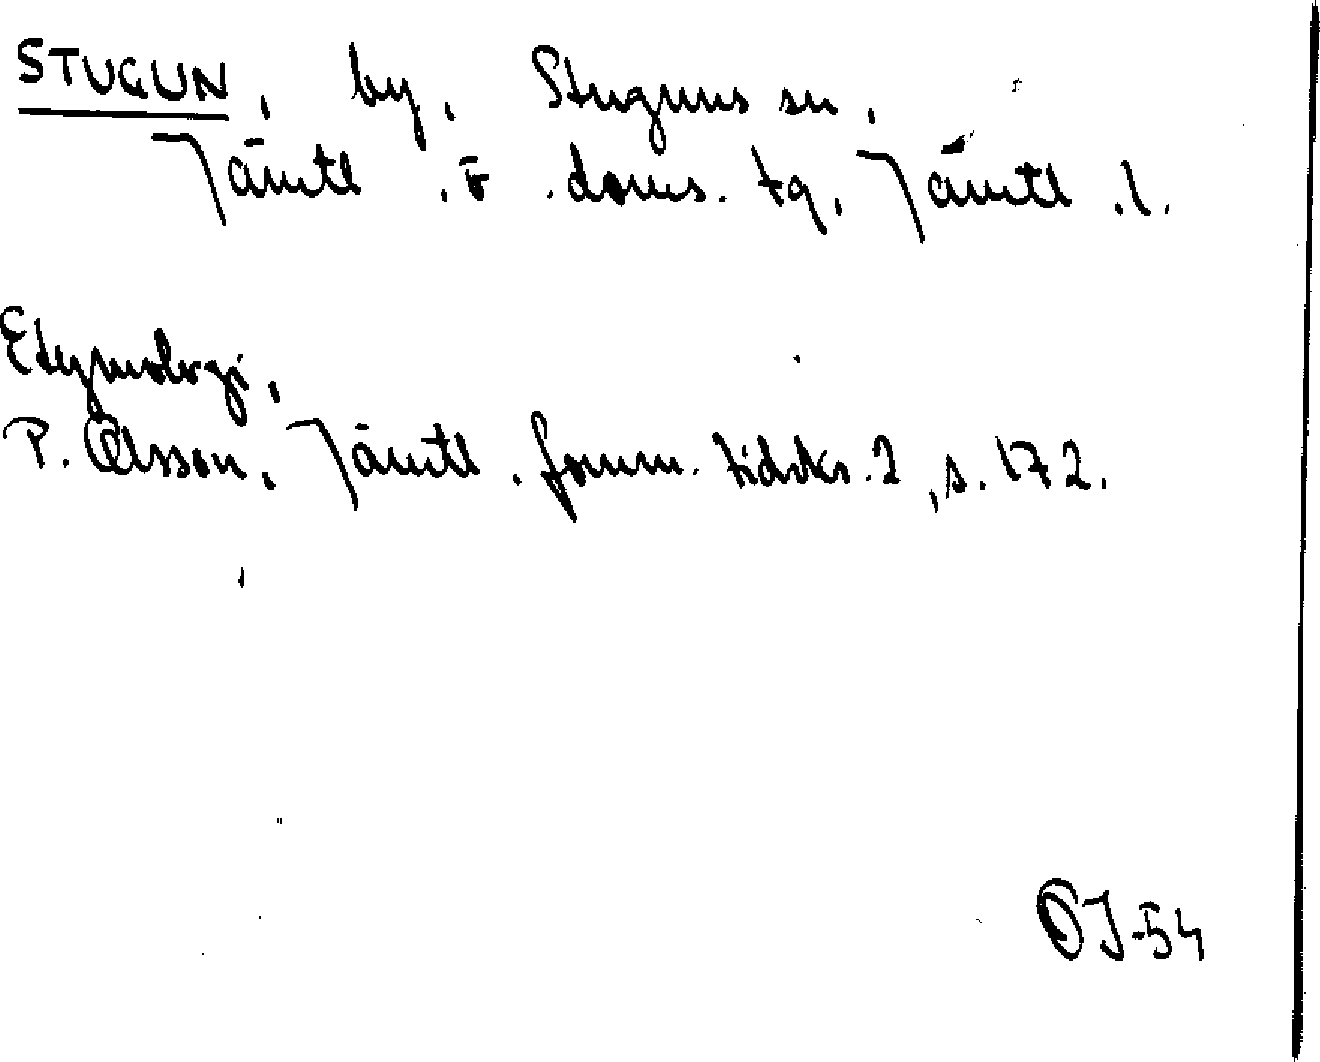 STUGUN, by, Stuguns sn,
Jämtl. ö. doms. tg, Jämtl. l.
Etymologi,
P. Olsson, Jämtl. fornm. tidskr. 2, s. 172.
OJ-54